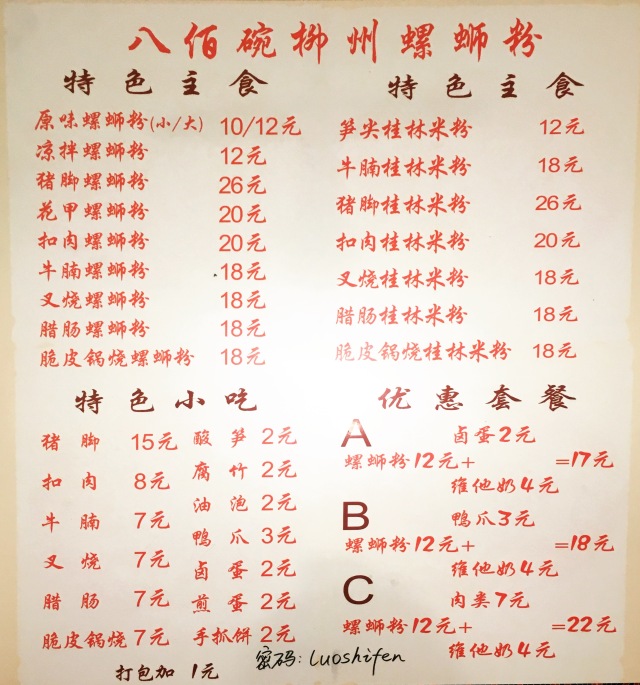 八佰碗柳州螺蛳粉
特色主食
原味螺蛳粉(小/大) 10/12元
凉拌螺蛳粉 12元
猪脚螺蛳粉 26元
花甲螺蛳粉 20元
扣肉螺蛳粉 20元
牛腩螺蛳粉 18元
叉烧螺蛳粉 18元
腊肠螺蛳粉 18元
脆皮锅烧螺蛳粉 18元
特色主食
笋尖桂林米粉 12元
牛腩桂林米粉 18元
猪脚桂林米粉 26元
扣肉桂林米粉 20元
叉烧桂林米粉 18元
腊肠桂林米粉 18元
脆皮锅烧桂林米粉 18元
特色小吃
猪脚 15元
扣肉 8元
牛腩 7元
叉烧 7元
腊肠 7元
脆皮锅烧 7元
酸笋 2元
腐竹 2元
油泡 2元
鸭爪 3元
卤蛋 2元
煎蛋 2元
手抓饼 2元
打包加 1元
优惠套餐
A
卤蛋2元
螺蛳粉12元+ =17元
维他奶4元
B
鸭爪3元
螺蛳粉12元+ =18元
维他奶4元
C
肉类7元
螺蛳粉12元+ =22元
维他奶4元
密码: luoshifen